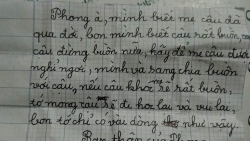 Phong à, mình biết mẹ cậu đã
qua đời, bọn mình biết cậu rất buồn,
cậu đừng buồn nữa, hãy để mẹ cậu được
nghỉ ngơi, mình và sang chia buồn
với cậu, nếu cậu khóc sẽ rất buồn,
tớ mong cậu sẽ đi học lại và vui lại,
bọn tớ chỉ có vài dòng như vậy.
Bạn thân của Phong